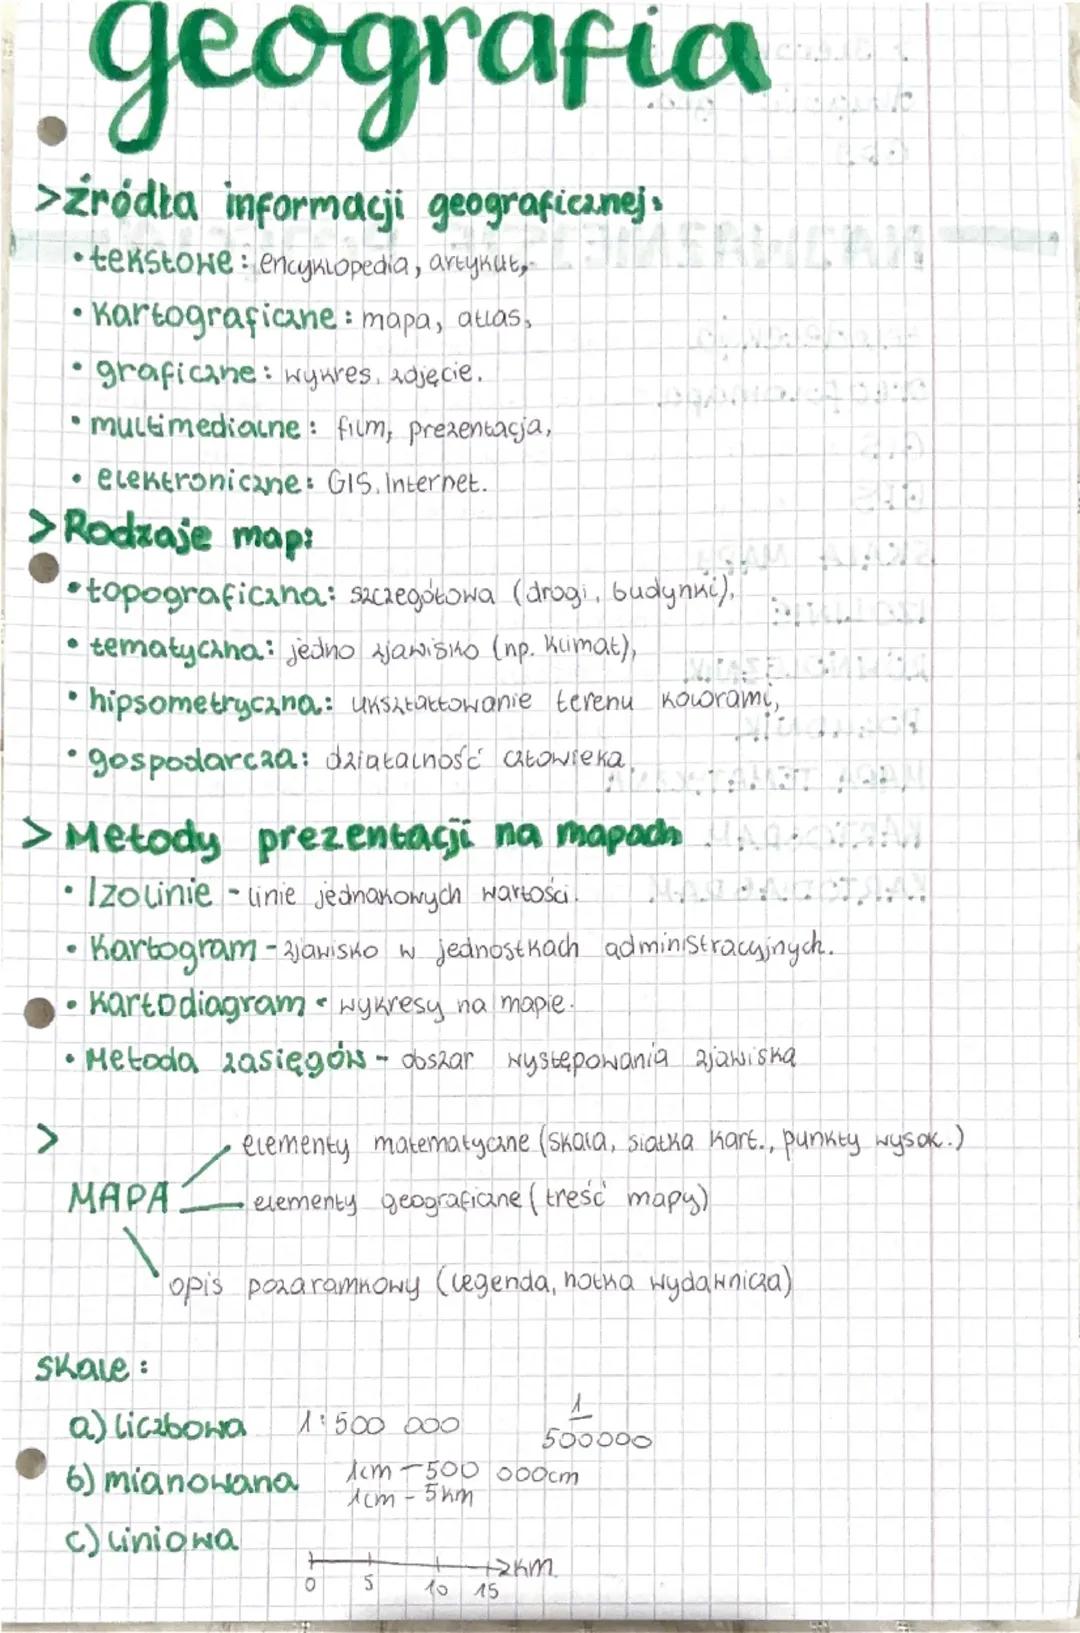 geografia
>źródła informacji geograficznej:
•tekstowe: encyklopedia, artykuł,
•kartograficzne: mapa, atlas,
•graficzne: wykres, zdjęcie.
•multimedialne: film, prezentacja,
•elektroniczne: GIS, Internet.
>Rodzaje map:
•topograficzna: szczegółowa (drogi, budynki),
•tematyczna: jedno zjawisko (np. klimat),
•hipsometryczna: ukształtowanie terenu kolorami,
•gospodarcza: działalność człowieka.
>Metody prezentacji na mapach
•Izolinie - linie jednakowych wartości.
•Kartogram - zjawisko w jednostkach administracyjnych.
•Kartodiagram - wykresy na mapie.
•Metoda zasięgów - obszar występowania zjawiska
>
elementy matematyczne (skala, siatka kart., punkty wysok.)
MAPA
elementy geograficzne (treść mapy)
opis pozaramkowy (legenda, notka wydawnicza)
skale:
a) liczbowa 1:500 000 1/500000
b) mianowana 1cm - 500 000cm
1cm - 5km
c) liniowa
km
0 5 10 15